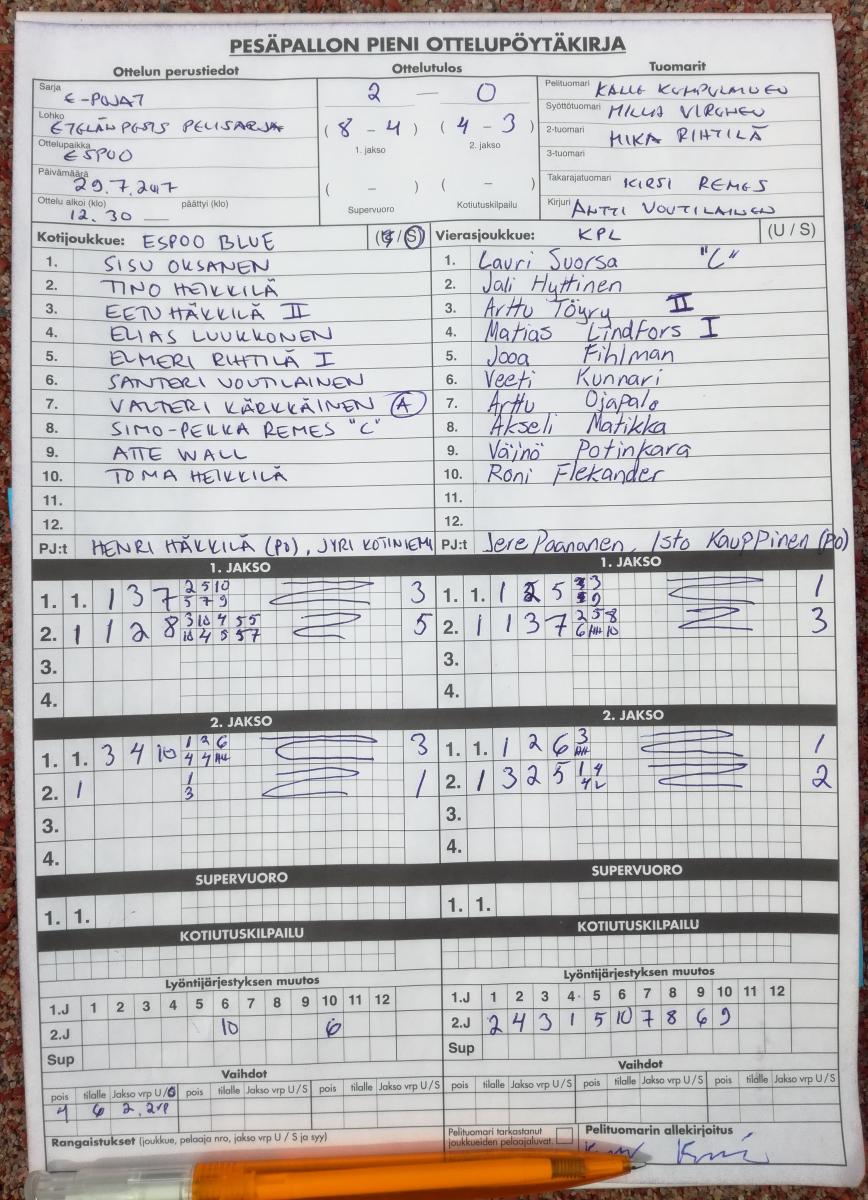 PESÄPALLON PIENI OTTELUPÖYTÄKIRJA
Ottelun perustiedot Ottelutulos Tuomarit
Sarja E-POJAT
Lohko PELISARJA
Ottelupaikka ESPOO
Päivämäärä 29.7.2017
Ottelu alkoi (klo) päättyi (klo)
12.30 —
2 — 0
( 8 - 4 ) ( 4 - 3 )
1. jakso 2. jakso
( - ) ( - )
Supervuoro Kotiutuskilpailu
Pelituomari KALLE KUMPULAINEN
Syöttötuomari MILLA VIRONEN
2-tuomari MIKA RIHTILÄ
3-tuomari
Takarajatuomari KIRSI REMES
Kirjuri ANTTI VOUTILAINEN
Kotijoukkue: ESPOO BLUE (U / S)
1. SISU OKSANEN
2. TINO HEIKKILÄ
3. EETU HÄKKILÄ II
4. ELIAS LUUKKONEN
5. ELMERI RIHTILÄ I
6. SANTERI VOUTILAINEN
7. VALTTERI KÄRKKÄINEN A
8. SIMO-PEKKA REMES "C"
9. ATTE WALL
10. TOMA HEIKKILÄ
11.
12.
PJ:t HENRI HÄKKILÄ (PO), JYRI KOTINIEMI
Vierasjoukkue: KPL (U / S)
1. Lauri Suorsa "C"
2. Jali Hyttinen
3. Arttu Töyry II
4. Matias Lindfors I
5. Jooa Fihlman
6. Veeti Kunnari
7. Arttu Ojapalo
8. Akseli Matikka
9. Väinö Potinkara
10. Roni Flekander
11.
12.
PJ:t Jere Paananen, Isto Kauppinen (PO)
1. JAKSO
1. 1. 1 3 7 2 5 10 3
5 7 9
2. 1 1 2 8 3 10 4 5 5 5
10 4 5 5 7
3.
4.
1. JAKSO
1. 1. 1 5 3 1
9
2. 1 1 3 7 2 5 8 3
6 10
3.
4.
2. JAKSO
1. 1. 3 4 10 1 2 6 3
4 4
2. 1 1 1
3
3.
4.
2. JAKSO
1. 1. 1 2 6 3 1
2. 1 3 2 5 1 4 2
4 2
3.
4.
SUPERVUORO
1. 1.
SUPERVUORO
1. 1.
KOTIUTUSKILPAILU
KOTIUTUSKILPAILU
Lyöntijärjestyksen muutos
1.J 1 2 3 4 5 6 7 8 9 10 11 12
2.J 10 6
Sup
Lyöntijärjestyksen muutos
1.J 1 2 3 4 5 6 7 8 9 10 11 12
2.J 2 4 3 1 5 10 7 8 6 9
Sup
Vaihdot
pois tilalle Jakso vrp U/S pois tilalle Jakso vrp U/S pois tilalle Jakso vrp U/S
6 2.
Vaihdot
pois tilalle Jakso vrp U/S pois tilalle Jakso vrp U/S pois tilalle Jakso vrp U/S
Rangaistukset (joukkue, pelaaja nro, jakso vrp U / S ja syy)
Pelituomari tarkastanut
joukkueiden pelaajaluvat.
Pelituomarin allekirjoitus